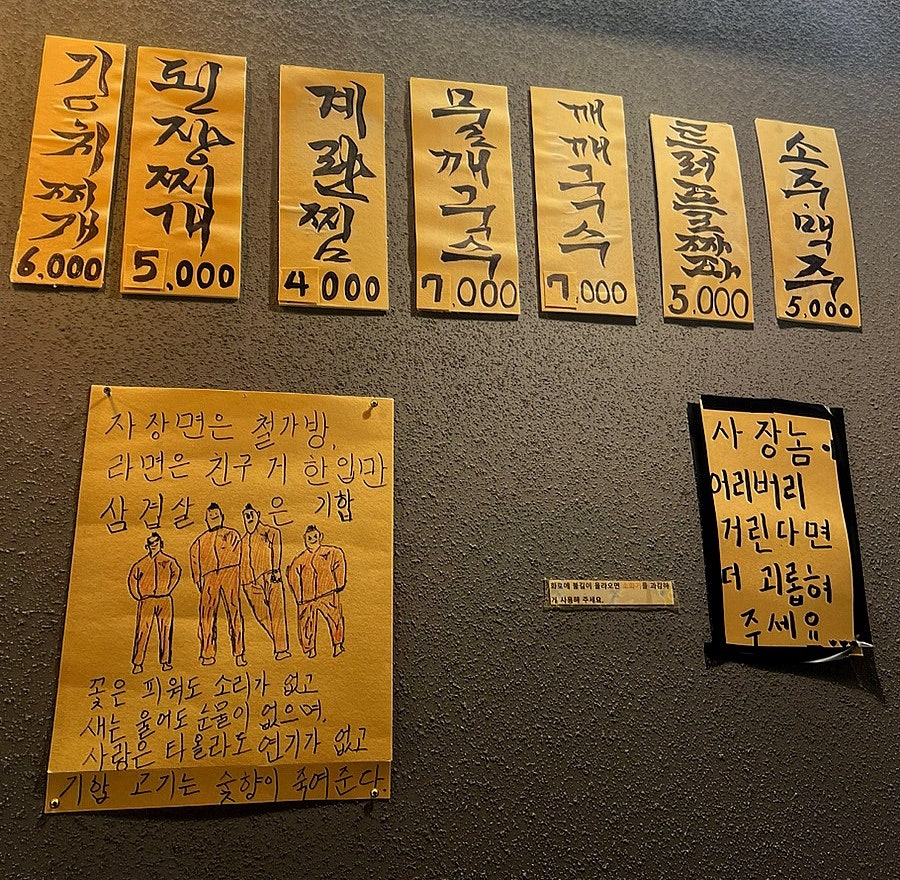 김치찌개
6,000
된장찌개
5,000
계란찜
4,000
물깨국수
7,000
깨깨국수
7,000
트러플짜파
5,000
소주.맥주
5,000
자장면은 철가방,
라면은 친구 거 한입만
삼겹살은 기합
꽃은 피워도 소리가 없고
새는 울어도 눈물이 없으며,
사랑은 타올라도 연기가 없고
기합 고기는 숯향이 죽여준다.
화로에 불길이 올라오면 소화기를 과감하
게 사용해 주세요.
사장놈이
어리버리
거린다면
더 괴롭혀
주세요...